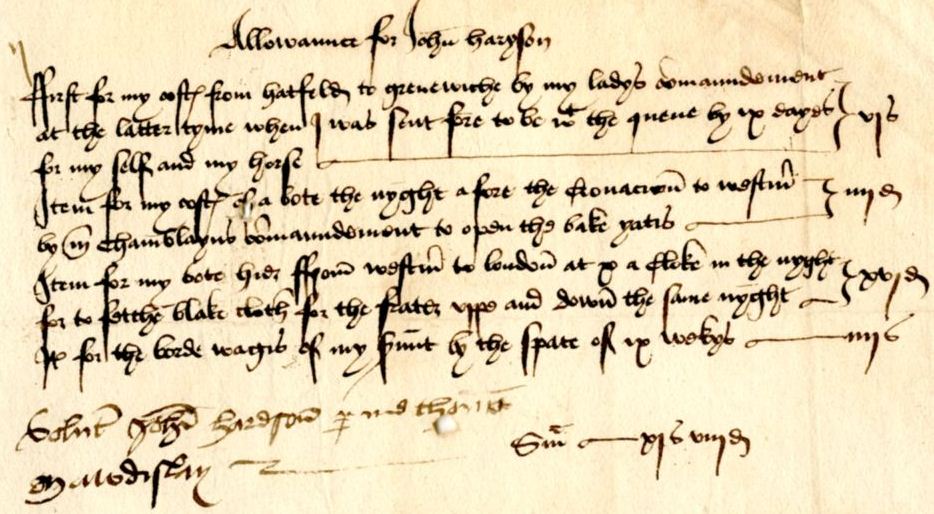 Allowaunce for John haryson
ffirst for my cost from hatfeld to grenewiche by my ladys comaundement
at the latter tyme when I was sent fore to be wt the quene by ix dayes vjs
for my self and my horse
Item for my cost of a bote the nyght a fore the Cronacion to westm iiijd
by m Chamblayns comaundement to open the bake yatis
Item for my bote hier ffrom westm to london at x a Cloke in the nyght xvjd
for to fetche blake cloth for the frater uppe and down the same nyght
It for the borde wagis of my sunt by the space of ix wekys iiijs
Solut John hardson p me thom
Sm xjs viijd